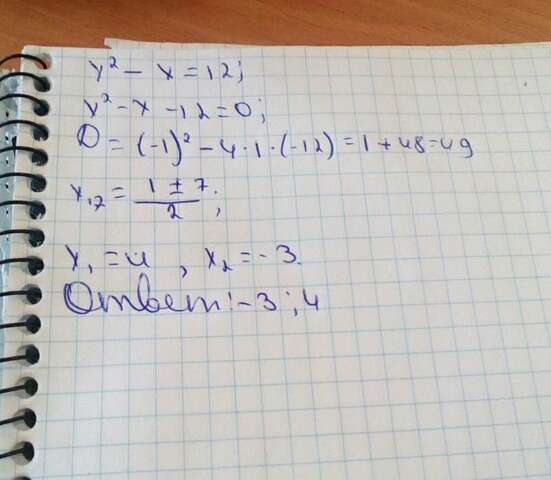 x² - x = 12;
x² - x - 12 = 0;
D = (-1)² - 4 · 1 · (-12) = 1 + 48 = 49
x₁,₂ = (1 ± 7)/2;
x₁ = 4, x₂ = -3.
Ответ: -3; 4